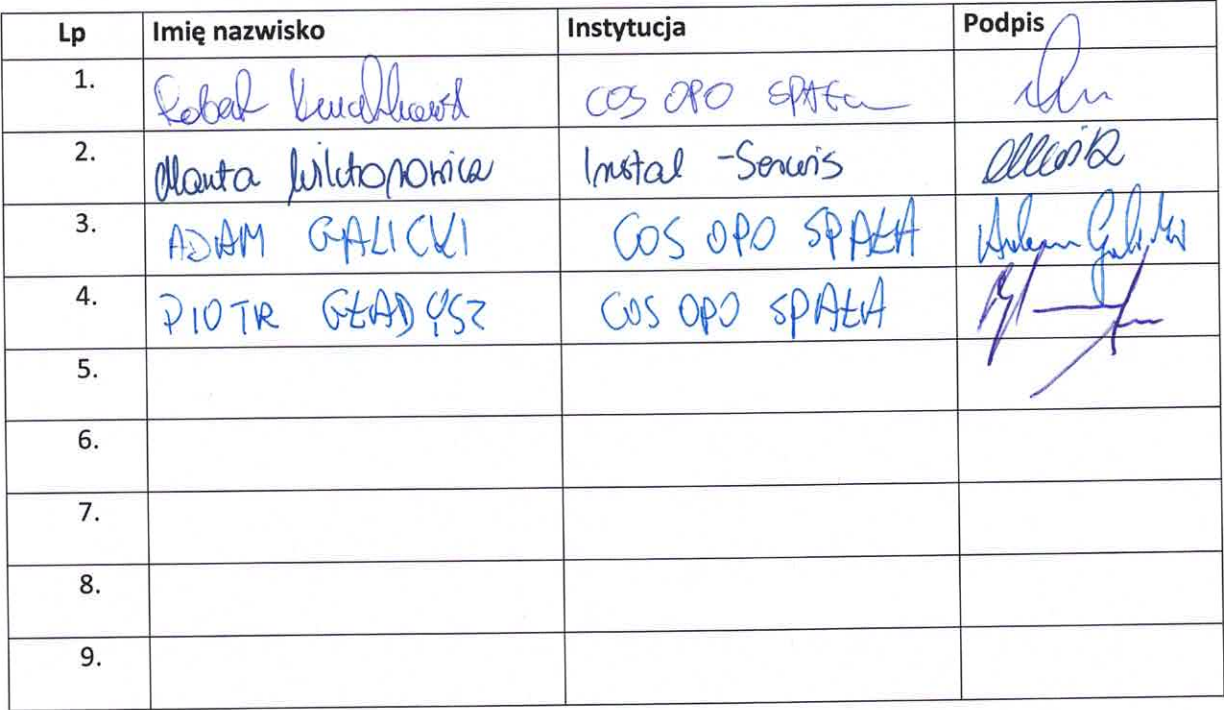 Lp Imię nazwisko Instytucja Podpis
1. Robert COS OPO SPAŁA
2. Marta Instal -Serwis
3. ADAM GALICKI COS OPO SPAŁA Adam Galicki
4. PIOTR GŁADYSZ COS OPO SPAŁA
5.
6.
7.
8.
9.